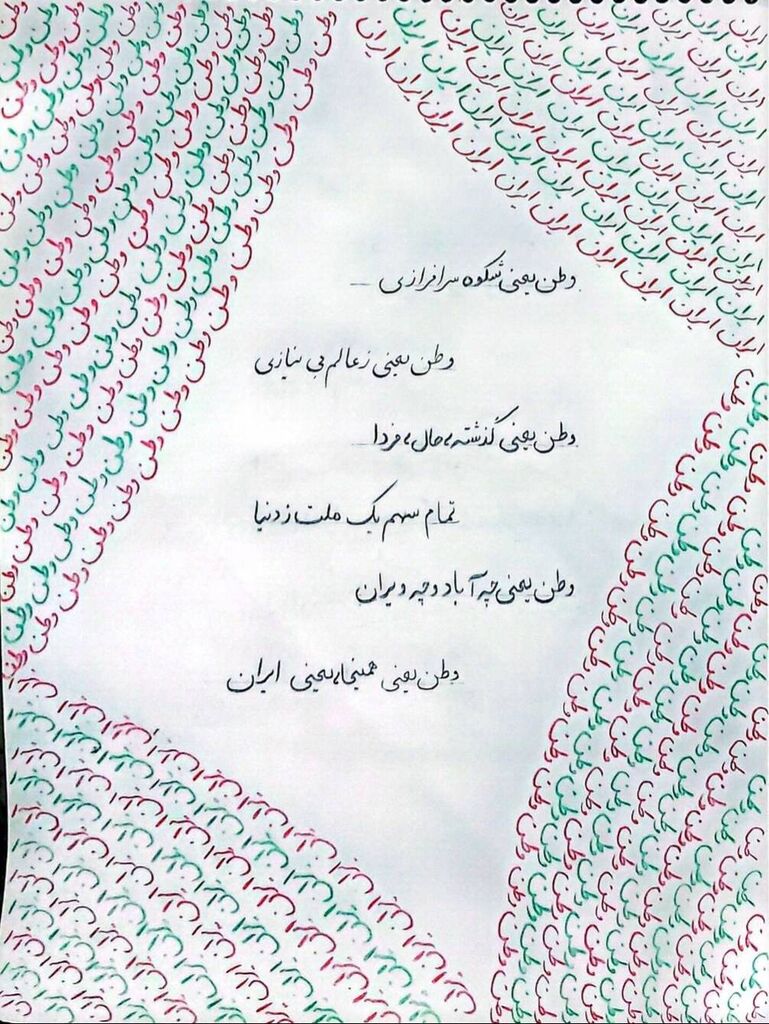 وطن یعنی شکوه سرافرازی ...
وطن یعنی ز عالم بی نیازی
وطن یعنی گذشته، حال، فردا
تمام سهم یک ملت ز دنیا
وطن یعنی چه آباد و چه ویران
وطن یعنی همینجا، یعنی ایران